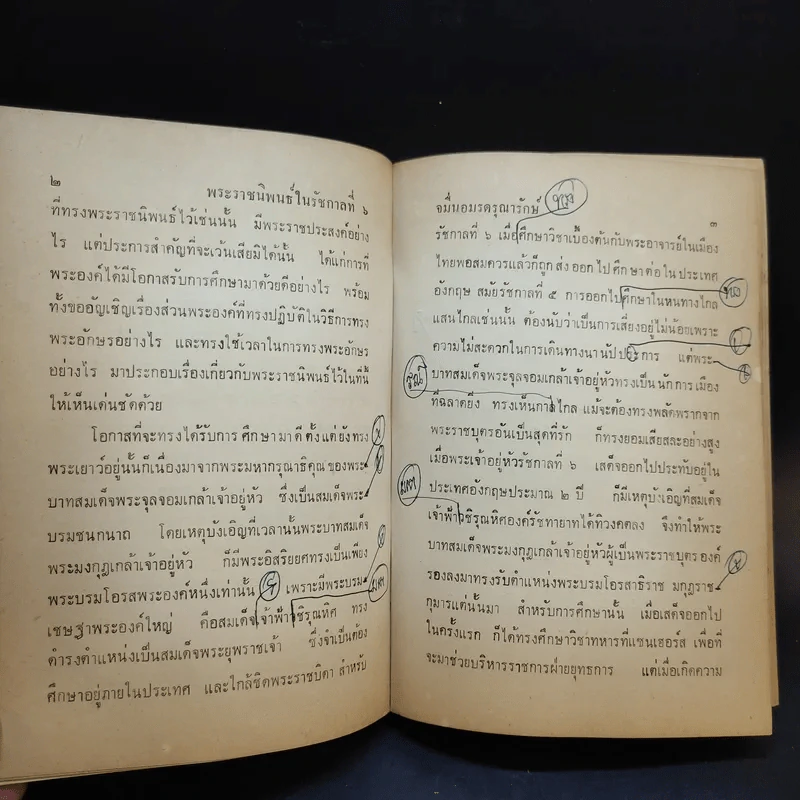 ๒
พระราชนิพนธ์ในรัชกาลที่ ๖
ที่ทรงพระราชนิพนธ์ไว้เช่นนั้น มีพระราชประสงค์อย่าง
ไร แต่ประการสำคัญที่จะเว้นเสียมิได้นั้น ได้แก่การที่
พระองค์ได้มีโอกาสรับการศึกษามาด้วยดีอย่างไร พร้อม
ทั้งขออัญเชิญเรื่องส่วนพระองค์ที่ทรงปฏิบัติในวิธีการทรง
พระอักษรอย่างไร และทรงใช้เวลาในการทรงพระอักษร
อย่างไร มาประกอบเรื่องเกี่ยวกับพระราชนิพนธ์ไว้ในที่นี้
ให้เห็นเด่นชัดด้วย
โอกาสที่จะทรงได้รับการศึกษามาดี ตั้งแต่ยังทรง
พระเยาว์อยู่นั้นก็เนื่องมาจากพระมหากรุณาธิคุณของพระ
บาทสมเด็จพระจุลจอมเกล้าเจ้าอยู่หัว ซึ่งเป็นสมเด็จพระ
บรมชนกนาถ โดยเหตุบังเอิญที่เวลานั้นพระบาทสมเด็จ
พระมงกุฎเกล้าเจ้าอยู่หัว ก็มีพระอิสริยยศทรงเป็นเพียง
พระบรมโอรสพระองค์หนึ่งเท่านั้น เพราะมีพระบรม
เชษฐาพระองค์ใหญ่ คือสมเด็จเจ้าฟ้าวชิรุณหิศ ทรง
ดำรงตำแหน่งเป็นสมเด็จพระยุพราชเจ้า ซึ่งจำเป็นต้อง
ศึกษาอยู่ภายในประเทศ และใกล้ชิดพระราชบิดา สำหรับ
จมื่นอมรดรุณารักษ์
๓
รัชกาลที่ ๖ เมื่อศึกษาวิชาเบื้องต้นกับพระอาจารย์ในเมือง
ไทยพอสมควรแล้วก็ถูกส่งออกไปศึกษาต่อในประเทศ
อังกฤษ สมัยรัชกาลที่ ๕ การออกไปศึกษาในหนทางไกล
แสนไกลเช่นนั้น ต้องนับว่าเป็นการเสี่ยงอยู่ไม่น้อยเพราะ
ความไม่สะดวกในการเดินทางนานัปประการ แต่พระ
บาทสมเด็จพระจุลจอมเกล้าเจ้าอยู่หัวทรงเป็นนักการเมือง
ที่ฉลาดยิ่ง ทรงเห็นกาลไกล แม้จะต้องทรงพลัดพรากจาก
พระราชบุตรอันเป็นสุดที่รัก ก็ทรงยอมเสียสละอย่างสูง
เมื่อพระเจ้าอยู่หัวรัชกาลที่ ๖ เสด็จออกไปประทับอยู่ใน
ประเทศอังกฤษประมาณ ๒ ปี ก็มีเหตุบังเอิญที่สมเด็จ
เจ้าฟ้าวชิรุณหิศองค์รัชทายาทได้ทิวงคตลง จึงทำให้พระ
บาทสมเด็จพระมงกุฎเกล้าเจ้าอยู่หัวผู้เป็นพระราชบุตรองค์
รองลงมาทรงรับตำแหน่งพระบรมโอรสาธิราช มกุฎราช
กุมารแต่นั้นมา สำหรับการศึกษานั้น เมื่อเสด็จออกไป
ในครั้งแรก ก็ได้ทรงศึกษาวิชาทหารที่แซนเฮอร์ส เพื่อที่
จะมาช่วยบริหารราชการฝ่ายยุทธการ แต่เมื่อเกิดความ